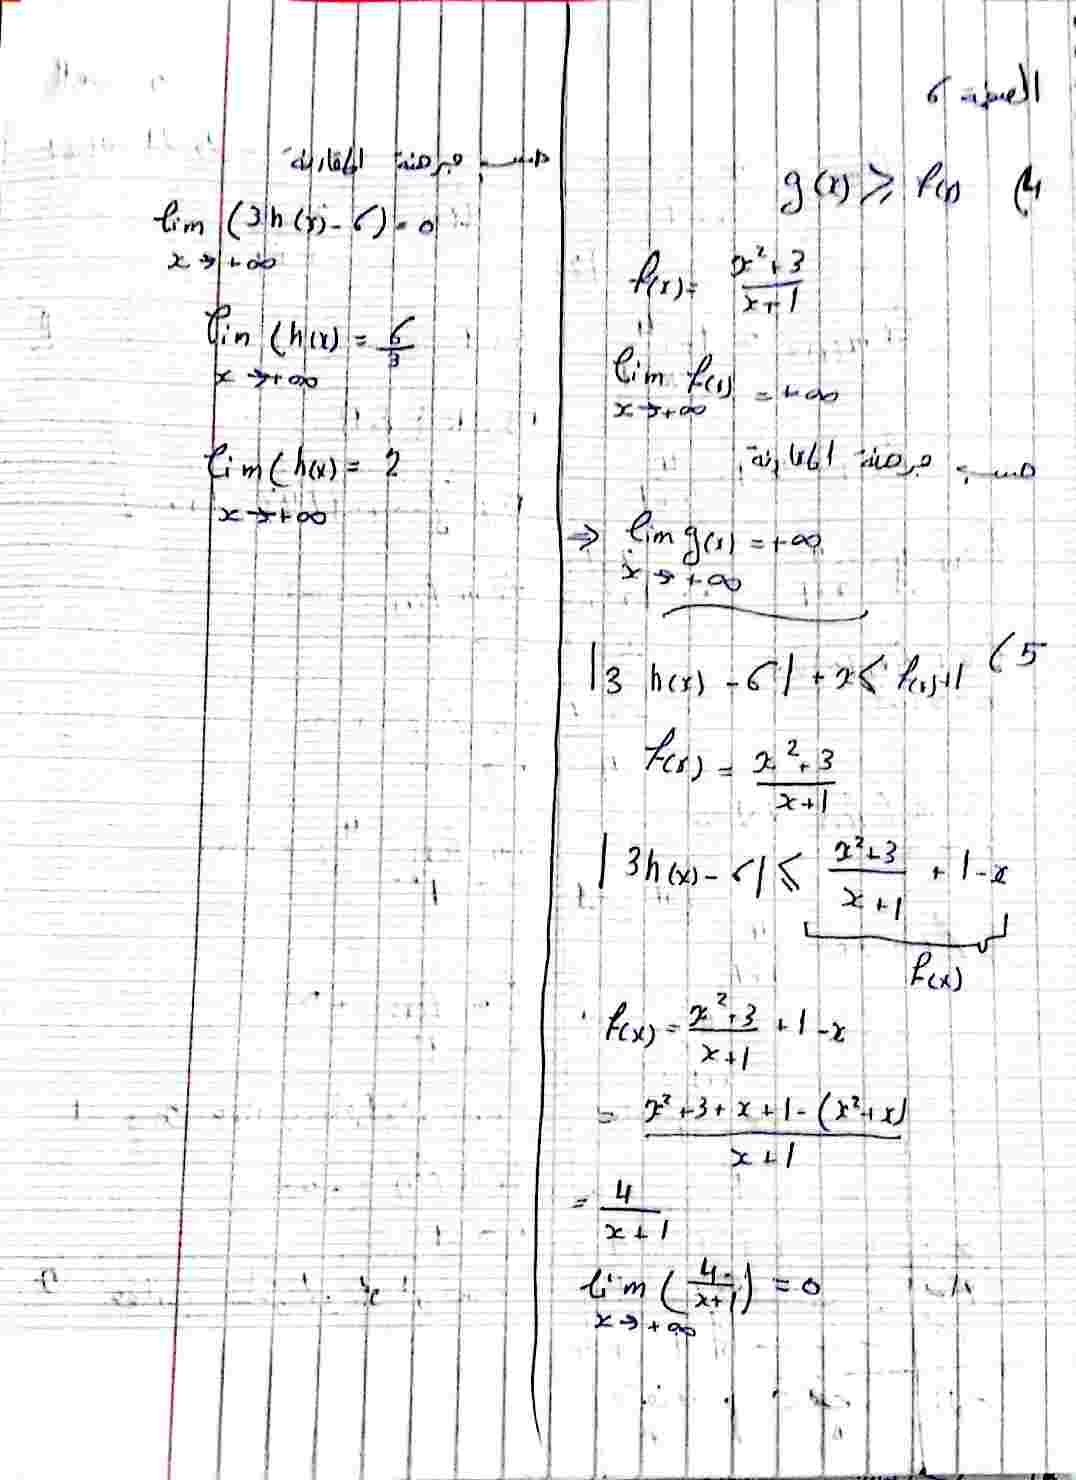 الصفحة 6
4) g(x) ⩾ f(x)
f(x) = \frac{x²+3}{x+1}
lim f(x) = +∞
x→+∞
حسب مبرهنة المقارنة
⇒ lim g(x) = +∞
x→+∞
5) |3 h(x) - 6| + x ⩽ f(x)+1
f(x) = \frac{x²+3}{x+1}
|3h(x) - 6| ⩽ \frac{x²+3}{x+1} + 1 - x
f(x)
f(x) = \frac{x²+3}{x+1} + 1 - x
= \frac{x²+3+x+1-(x²+x)}{x+1}
= \frac{4}{x+1}
lim (\frac{4}{x+1}) = 0
x→+∞
حسب مبرهنة المقارنة
lim (3h(x) - 6) = 0
x→+∞
lim (h(x) = \frac{6}{3}
x→+∞
lim (h(x) = 2
x→+∞